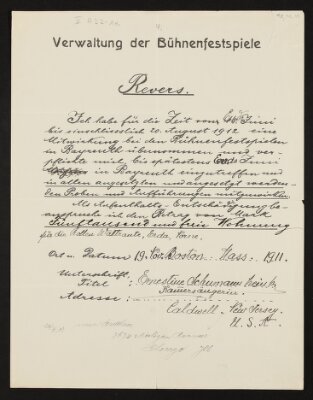 Verwaltung der Bühnenfestspiele
Revers.
Ich habe für die Zeit vom Juni
bis einschliesslich 20. August 1912 eine
Mitwirkung bei den Bühnenfestspielen
in Bayreuth übernommen und ver-
pflichte mich, bis spätestens Ende Juni
in Bayreuth einzutreffen und
in allen angesetzten und angesetzt werden-
den Proben und Aufführungen mitzuwirken.
Als Aufenthalts-Entschädigung be-
anspruche ich den Betrag von Mark
Fünftausend und freie Wohnung
für die Waltraute, Erda, Norne.
Ort u. Datum 19. Boston Mass. 1911.
Unterschrift: Ernestine Schumann Heink
Titel: Kammersängerin
Adresse: Caldwell - New Jersey.
U. S. A.
Chicago Ill